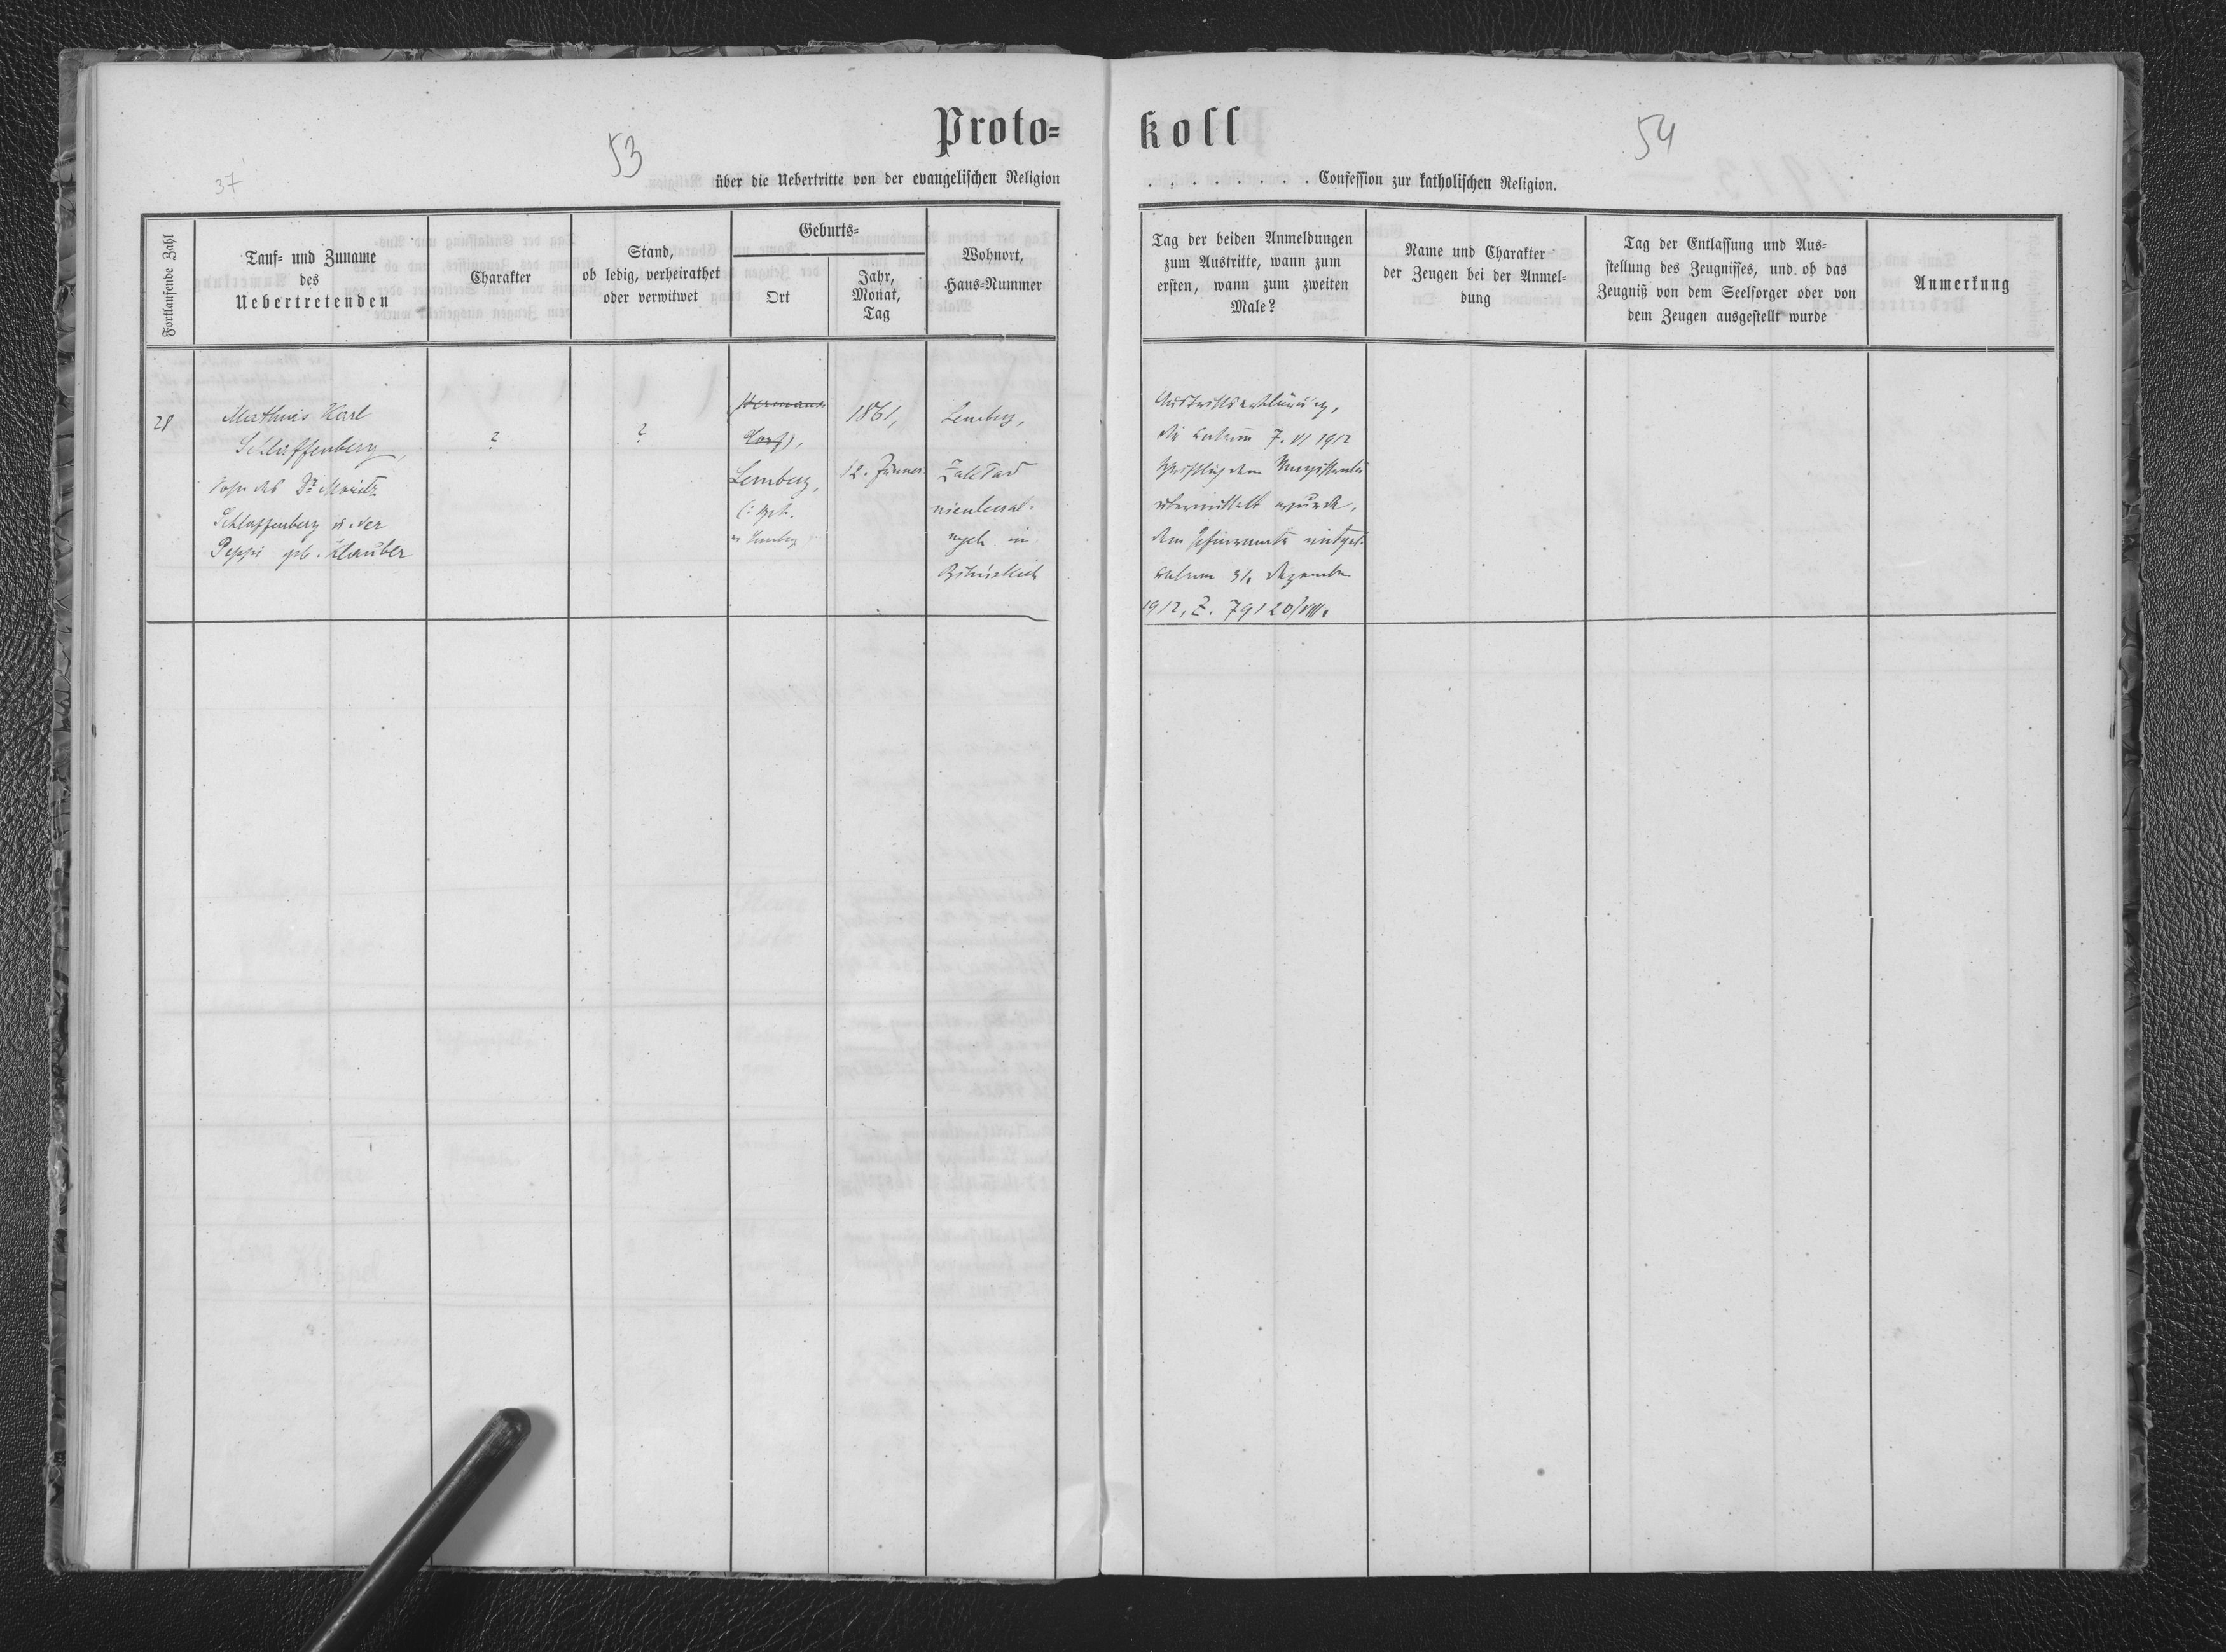 37
53
Proto=
über die Uebertritte von der evangelischen Religion
Fortlaufende Zahl
Tauf= und Zuname
des
Uebertretenden
Charakter
Stand,
ob ledig, verheirathet
oder verwitwet
Geburts=
Ort
Jahr,
Monat,
Tag
Wohnort,
Haus=Nummer
28
Mathuis Karl
Schlaffenberg,
Sohn des Dr. Moritz
Schlaffenberg u. der
Peppi geb. Klauber
?
?
Lemberg,
1861,
12. Jänner
Lemberg,
Zakład
koll
54
. . . . . . . . Confession zur katholischen Religion.
Tag der beiden Anmeldungen
zum Austritte, wann zum
ersten, wann zum zweiten
Male?
Name und Charakter
der Zeugen bei der Anmel=
dung
Tag der Entlassung und Aus=
stellung des Zeugnisses, und ob das
Zeugniß von dem Seelsorger oder von
dem Zeugen ausgestellt wurde
Anmerkung
Austrittserklärung,
die datum 7. VI 1912
schriftlich dem Magistrate
übermittelt wurde,
dem Pfarramte mitget.
datum 31. Dezember
1912, Z. 79120/VIII.